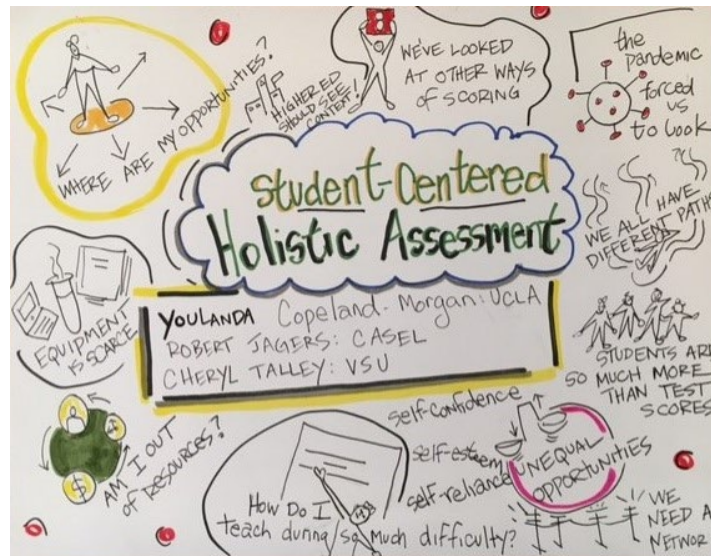 WHERE ARE MY OPPORTUNITIES?
HIGHER ED
SHOULD SEE
CONTEXT!
WE'VE LOOKED
AT OTHER WAYS
OF SCORING
the
pandemic
forced us
to look
Student-Centered
Holistic Assessment
WE ALL HAVE
DIFFERENT PATHS
YOULANDA Copeland-Morgan: UCLA
ROBERT JAGERS: CASEL
CHERYL TALLEY: VSU
EQUIPMENT
IS SCARCE
STUDENTS ARE
SO MUCH MORE
THAN TEST
SCORES
$
AM I OUT
OF RESOURCES?
self-confidence
self-esteem
self-reliance
UNEQUAL
OPPORTUNITIES
How Do I
teach during so much difficulty?
WE
NEED A
NETWOR